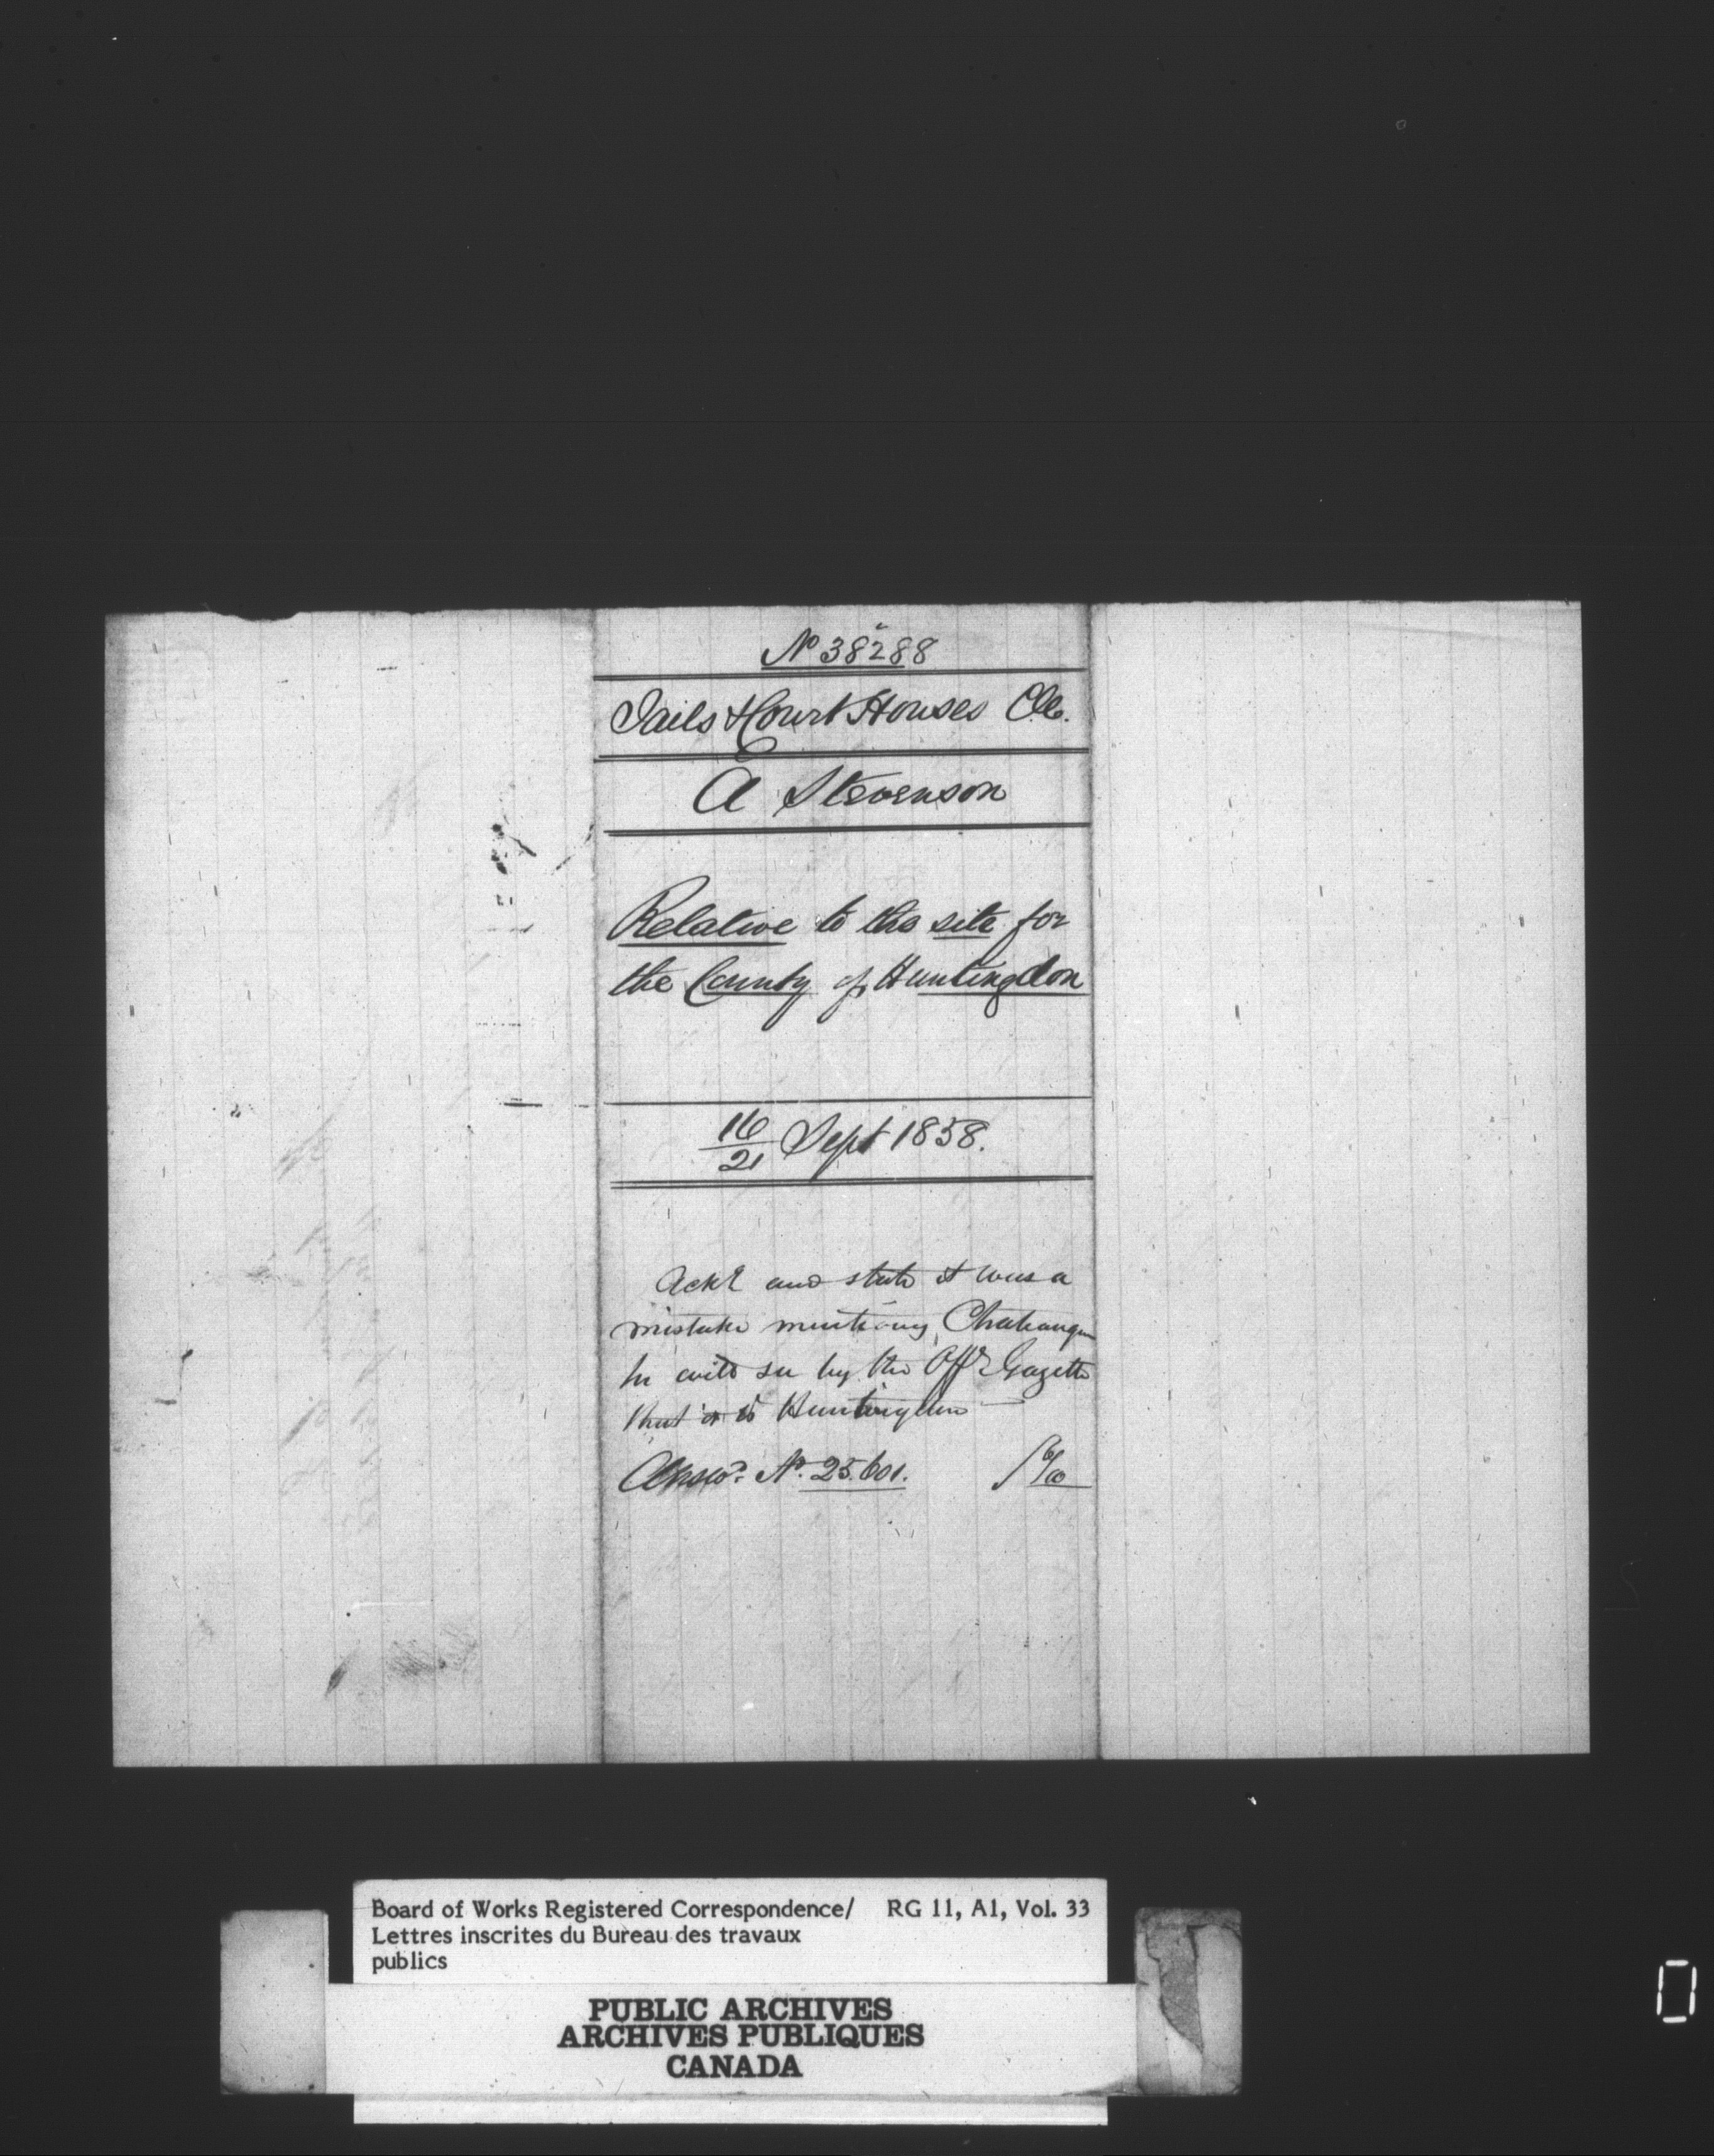 No 38288
Jails & Court Houses C.E.
A Stevenson
Relative to the site for
the County of Huntingdon
16/21 Sept 1858.
Ackl and state it was a
mistake mentiong Chateaugu
he will see by the Offl Gazette
that it is Huntingdon
Answd. No. 25.601.
Board of Works Registered Correspondence/ RG 11, A1, Vol. 33
Lettres inscrites du Bureau des travaux
publics
PUBLIC ARCHIVES
ARCHIVES PUBLIQUES
CANADA